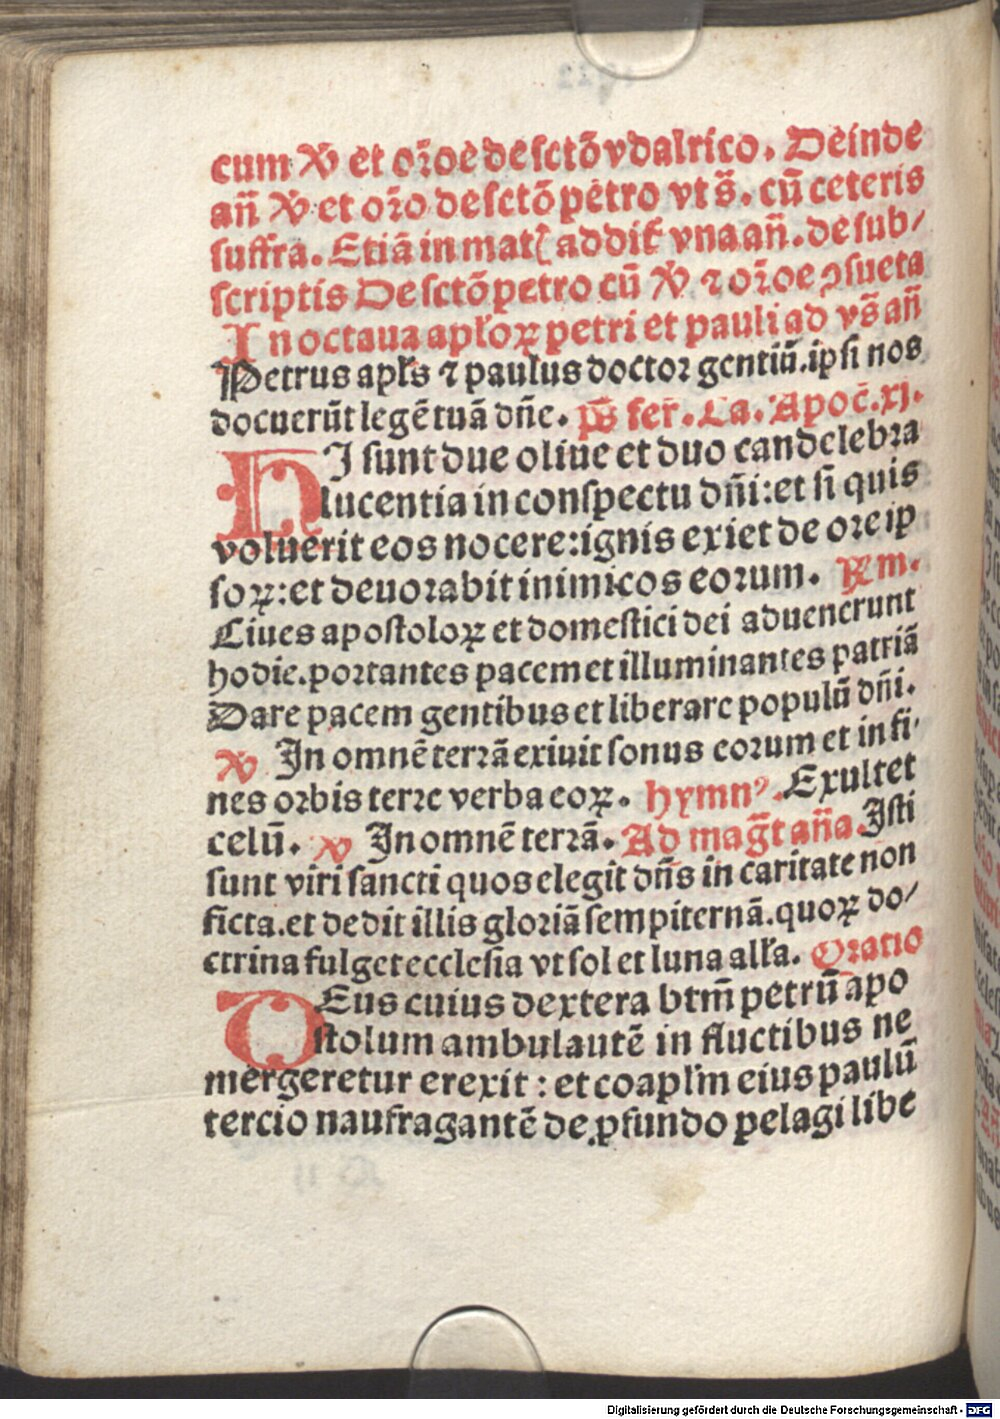 cum ℣ et or̄oe de sctō vdalrico. Deinde
an̄ ℣ et or̄o de sctō petro vt s̄. cū ceteris
suffra. Etiā in mat᷑ addit᷑ vna an̄. de sub/
scriptis De sctō petro cū ℣ ⁊ or̄oe ꝯsueta
In octaua apƚoꝝ petri et pauli ad vs̄ an̄
Petrus apƚs ⁊ paulus doctor gentiū. ipsi nos
docuerūt legē tuā dn̄e. ps̄ fer̄. Ca. Apoc̄. xj.
HI sunt due oliue et duo candelebra
lucentia in conspectu dn̄i: et si quis
voluerit eos nocere: ignis exiet de ore ip
soꝝ: et deuorabit inimicos eorum. ℞m.
Ciues apostoloꝝ et domestici dei aduenerunt
hodie. portantes pacem et illuminantes patriā
Dare pacem gentibus et liberare populū dn̄i.
℣ In omnē terrā exiuit sonus eorum et in fi/
nes orbis terre verba eoꝝ. hymnꝰ. Exultet
celū. ℣ In omnē terrā. Ad mag̅t an̄a. Isti
sunt viri sancti quos elegit dn̄s in caritate non
ficta. et dedit illis gloriā sempiternā. quoꝝ do/
ctrina fulget ecclesia vt sol et luna alƚa. Oratio
DEus cuius dextera btm̄ petrū apo
stolum ambulautē in fluctibus ne
mergeretur erexit: et coapƚm eius paulū
tercio naufragantē de ꝓfundo pelagi libe
Digitalisierung gefördert durch die Deutsche Forschungsgemeinschaft - DFG